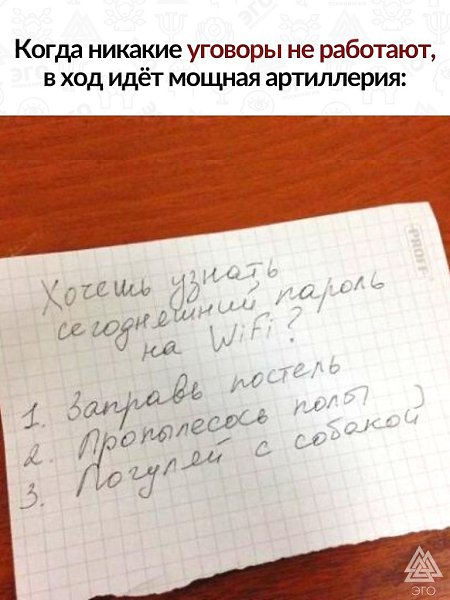 Когда никакие уговоры не работают,
в ход идёт мощная артиллерия:
PROFF
Хочешь узнать
сегодняшний пароль
на WiFi?
1. Заправь постель
2. Пропылесось полы
3. Погуляй с собакой
ЭГО